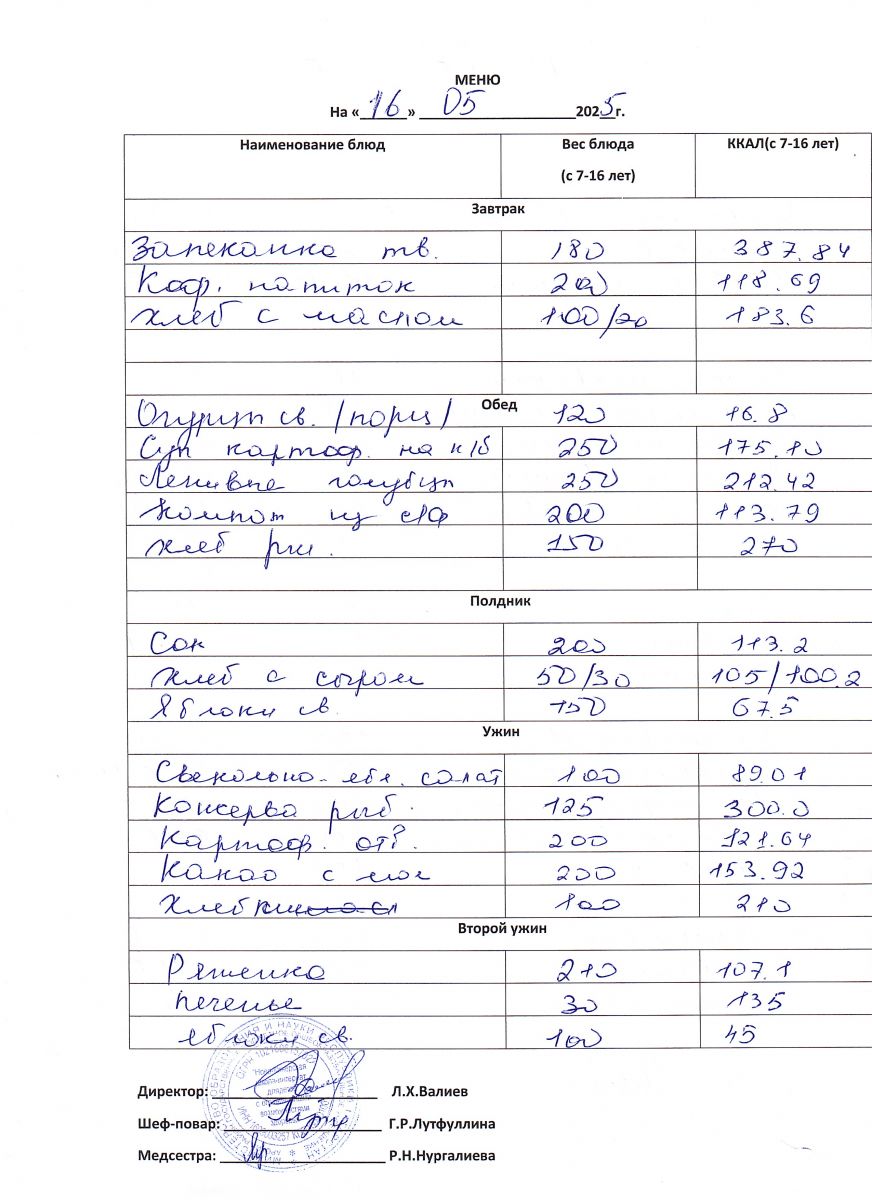 МЕНЮ
На «16» 05 2025г.
Наименование блюд Вес блюда (с 7-16 лет) ККАЛ(с 7-16 лет)
Завтрак
Запеканка тв. 180 387.84
Коф. напиток 200 118.69
Хлеб с маслом 100/20 183.6
Обед
Огурцы св. /порц/ 120 16.8
Суп картоф. на к/б 250 175.10
Ленивые голубцы 250 212.42
Компот из с/ф 200 113.79
Хлеб рж. 150 270
Полдник
Сок 200 113.2
Хлеб с сыром 50/30 105/100.2
Яблоки св. 150 67.5
Ужин
Свекольно-ябл. салат 100 89.01
Консерва рыб. 125 300.0
Картоф. отв. 200 121.64
Какао с мол 200 153.92
Хлеб 100 210
Второй ужин
Ряженка 210 107.1
печенье 30 135
яблоки св. 100 45
Директор: Л.Х.Валиев
Шеф-повар: Г.Р.Лутфуллина
Медсестра: Р.Н.Нургалиева